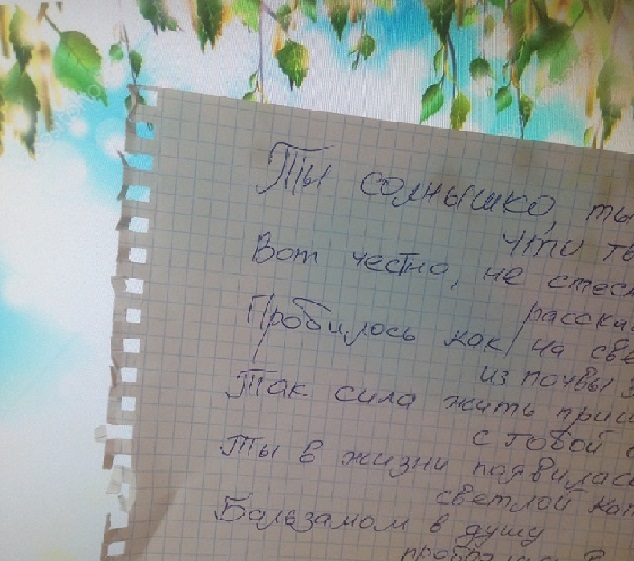 Ты солнышко, ты
что
Вот честно, не
Пробилось как на
из почвы
Так сила жить
с тобой
Ты в жизни появилась
светлой
Бальзамом в душу